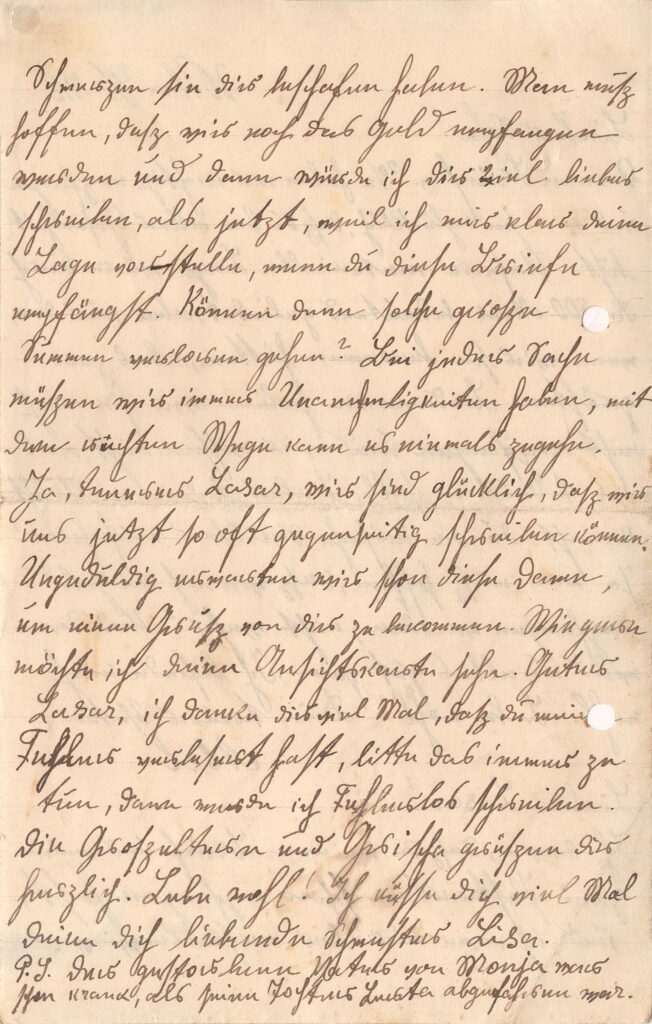 Schmerzen sie dir beschafen haben. Man mußz
hoffen, daß wir noch das Geld empfangen
werden und dann würde ich dir viel lieber
schreiben, als jetzt, weil ich mir klar deine
Lage vorstelle, wenn du diese Briefe
empfängst. Können denn solche groszе
Summen verloren gehen? Bei jeder Sache
müßzen wir immer Unannemligkeiten haben, mit
dem rechten Wege kann es niemals zugehn.
Ja, teuerer Lasar, wir sind glücklich, daß wir
uns jetzt so oft gegenseitig schreiben können.
Ungeduldig erwarten wir schon diese Damen,
um einen Grusz von dir zu bekommen. Wie gern
möchte ich deine Ansichtskarte sehn. Guter
Lasar, ich danke dir viel Mal, daß du meine
Fehler verbesert hast, bitte das immer zu
tun, dann werde ich Fehlerlos schreiben.
Die Groszeltern und Grischa grüszen dir
herzlich. Lebe wohl! Ich küsse dich viel Mal
deine dich liebende Schwester Lisa.
P.S. der gestorbene Vater von Monja war
schon krank, als seine Tochter Berta abgefahren war.